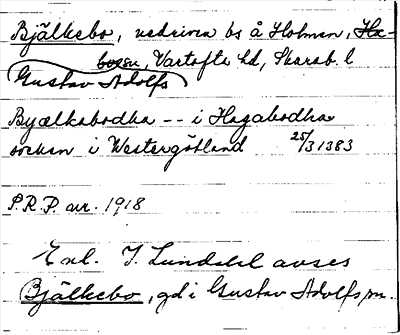 Bjälkebo, nedriven bs å Holmen, Ha-
boesn, Vartofta hd, Skarab. l
Gustav Adolfs
Byælkabodha -- i Hagabodha
socken i Westergötland 25/3 1383
P.R.P. nr. 1918
Enl. I. Lundahl avses
Bjälkebo, gd i Gustav Adolfs, sn.